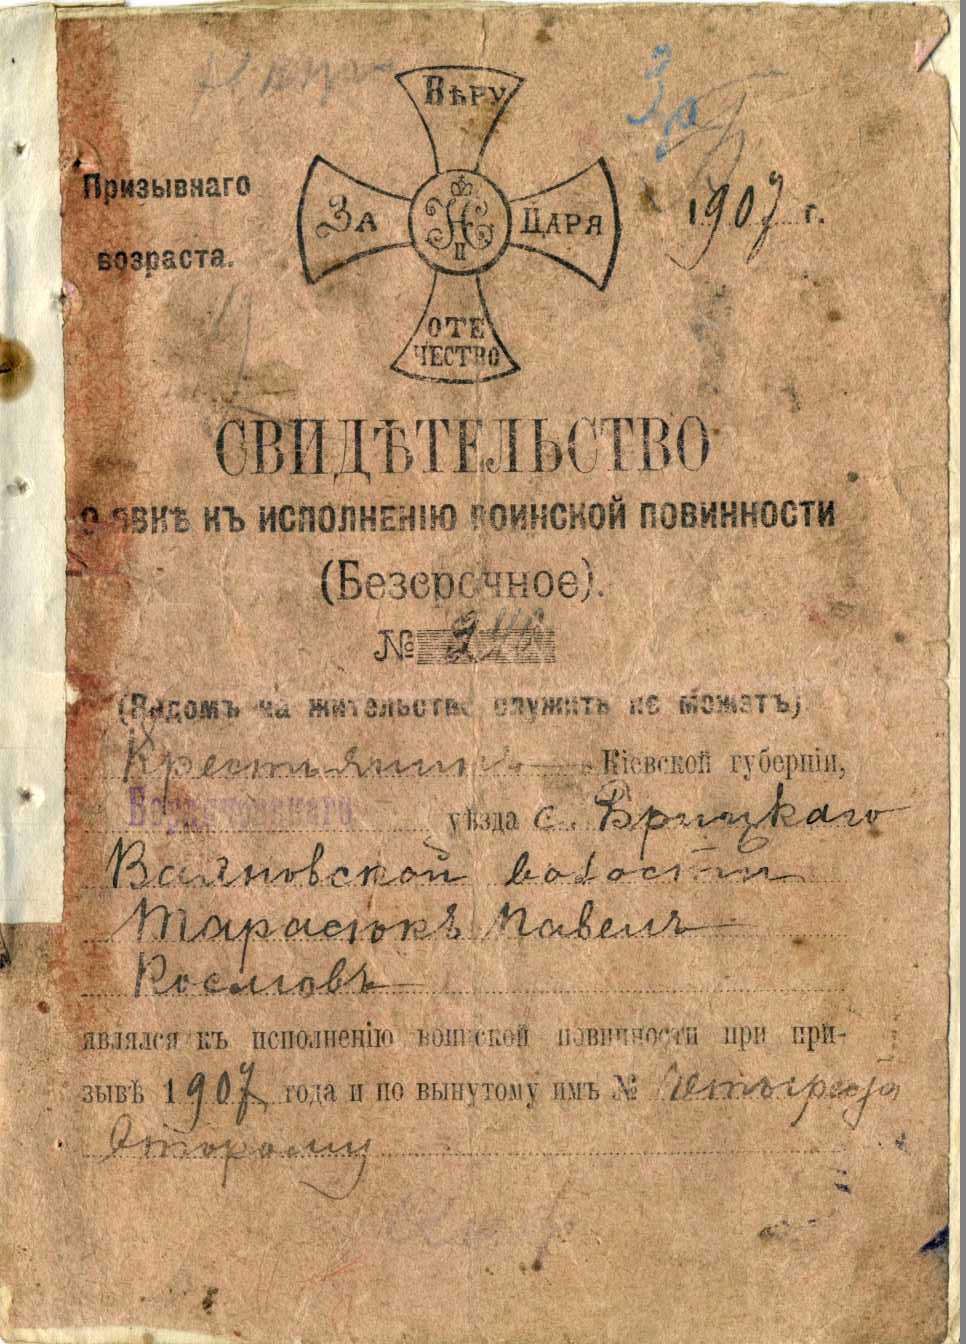 Вѣру
Призывнаго
За
Царя
1907 г.
возраста.
Н
II
Оте
чество
СВИДѢТЕЛЬСТВО
о явкѣ къ исполненію воинской повинности
(Безсрочное).
№
(Видомъ на жительство служить не можетъ)
Крестьянинъ Кіевской губерніи,
Бердичевскаго уѣзда с. Брицкаго
волости
Тарасюкъ Павелъ
являлся къ исполненію воинской повинности при при-
зывѣ 1907 года и по вынутому имъ №
второму